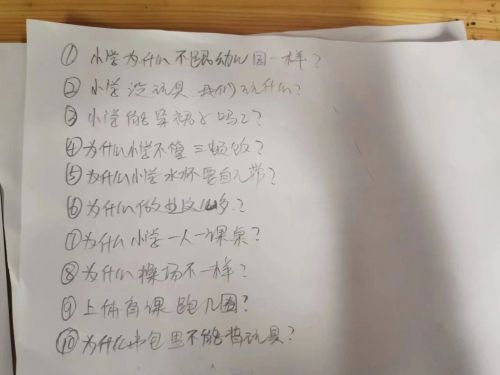 ① 小学为什么不跟幼儿园一样?
② 小学没玩具 我们玩什么?
③ 小学能穿裙子吗?
④ 为什么小学不管三顿饭?
⑤ 为什么小学水杯要自己带?
⑥ 为什么作业这么多?
⑦ 为什么小学一人一课桌?
⑧ 为什么操场不一样?
⑨ 上体育课跑几圈?
⑩ 为什么书包里不能带玩具?